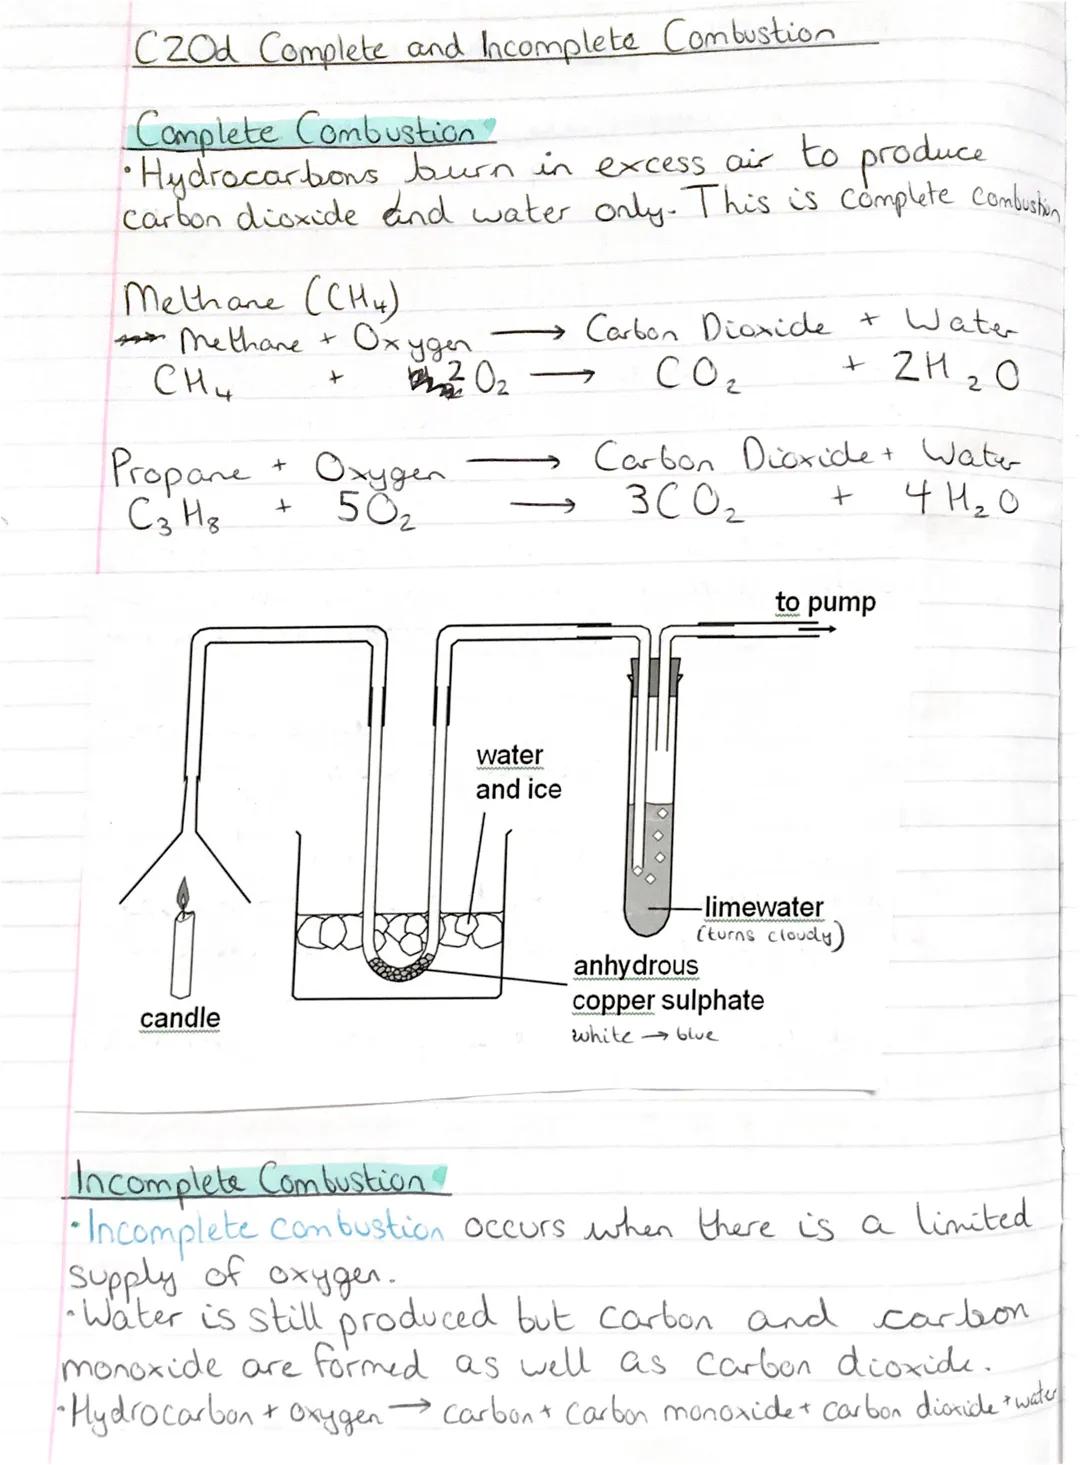 C20d Complete and Incomplete Combustion
Complete Combustion
• Hydrocarbons burn in excess air to produce
carbon dioxide and water only. This is complete combustion
Methane (CH₄)
Methane + Oxygen → Carbon Dioxide + Water
CH₄ + 2O₂ → CO₂ + 2H₂O
Propane + Oxygen → Carbon Dioxide + Water
C₃H₈ + 5O₂ → 3CO₂ + 4H₂O
to pump
water
and ice
limewater
(turns cloudy)
anhydrous
copper sulphate
white → blue
candle
Incomplete Combustion
• Incomplete combustion occurs when there is a limited
supply of oxygen.
• Water is still produced but carbon and carbon
monoxide are formed as well as carbon dioxide.
• Hydrocarbon + oxygen → carbon + carbon monoxide + carbon dioxide + water